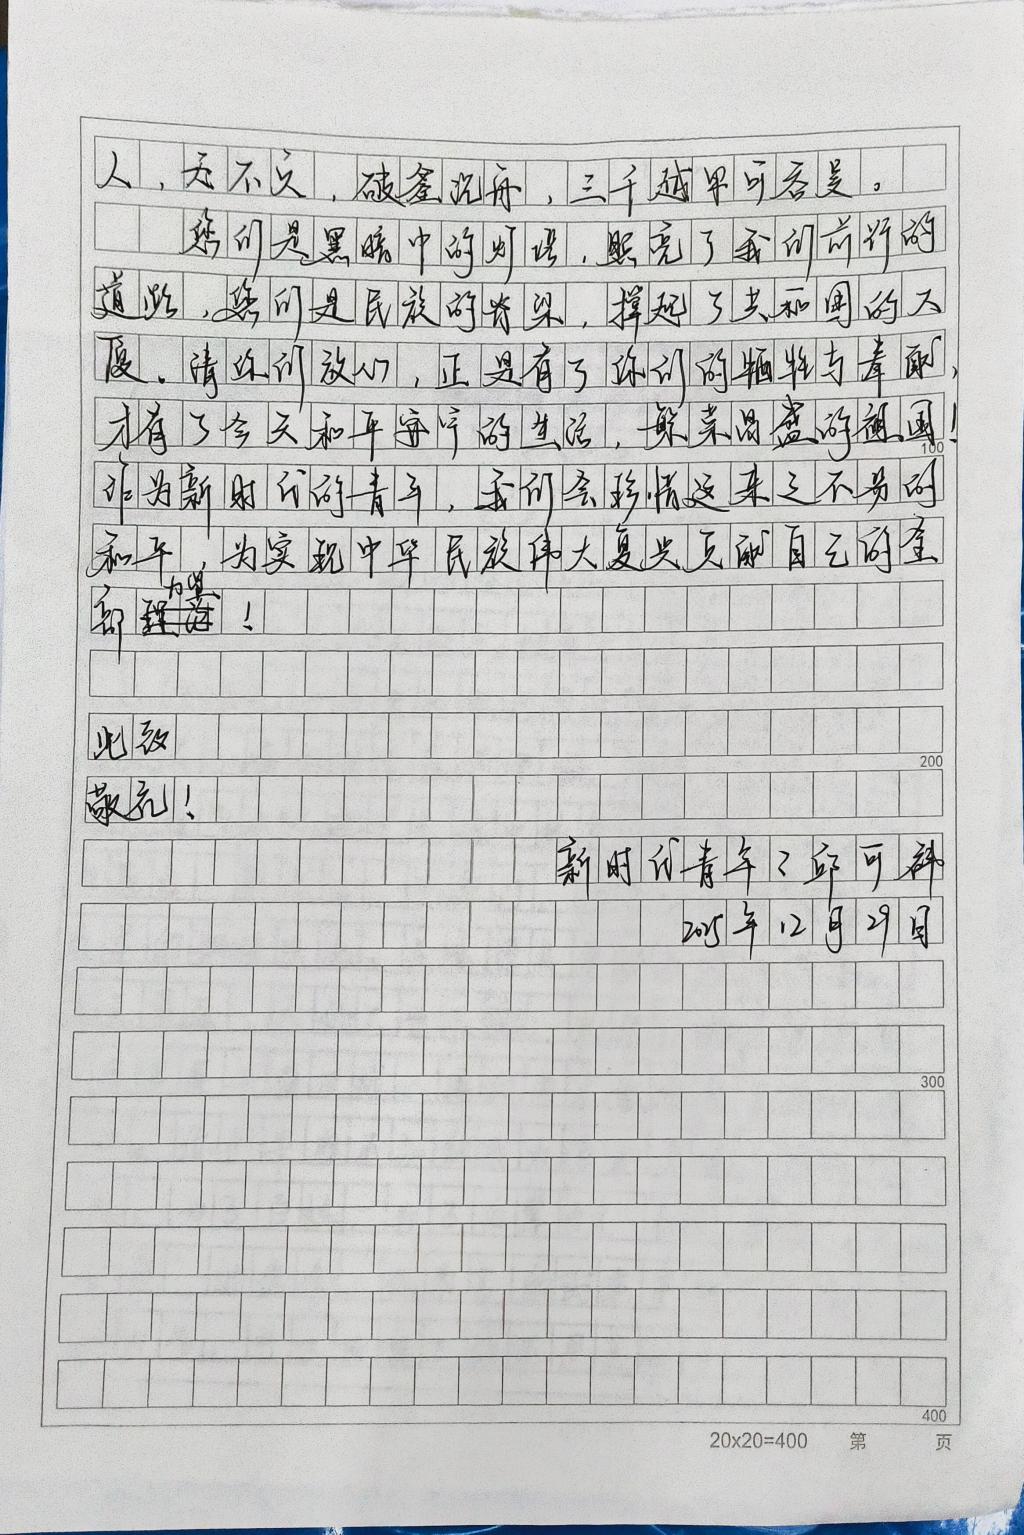 人，天不欠，破釜沉舟，三千越甲可吞吴。
您们是黑暗中的灯塔，照亮了我们前行的
道路，您们是民族的脊梁，撑起了共和国的大
厦。请你们放心，正是有了你们的牺牲与奉献，
才有了今天和平安宁的生活，繁荣昌盛的祖国！
100
作为新时代的青年，我们会珍惜这来之不易的
和平，为实现中华民族伟大复兴贡献自己的全
部力量！
此致
200
敬礼！
新时代青年：邱可
2025年12月29日
300
400
20x20=400 第 页